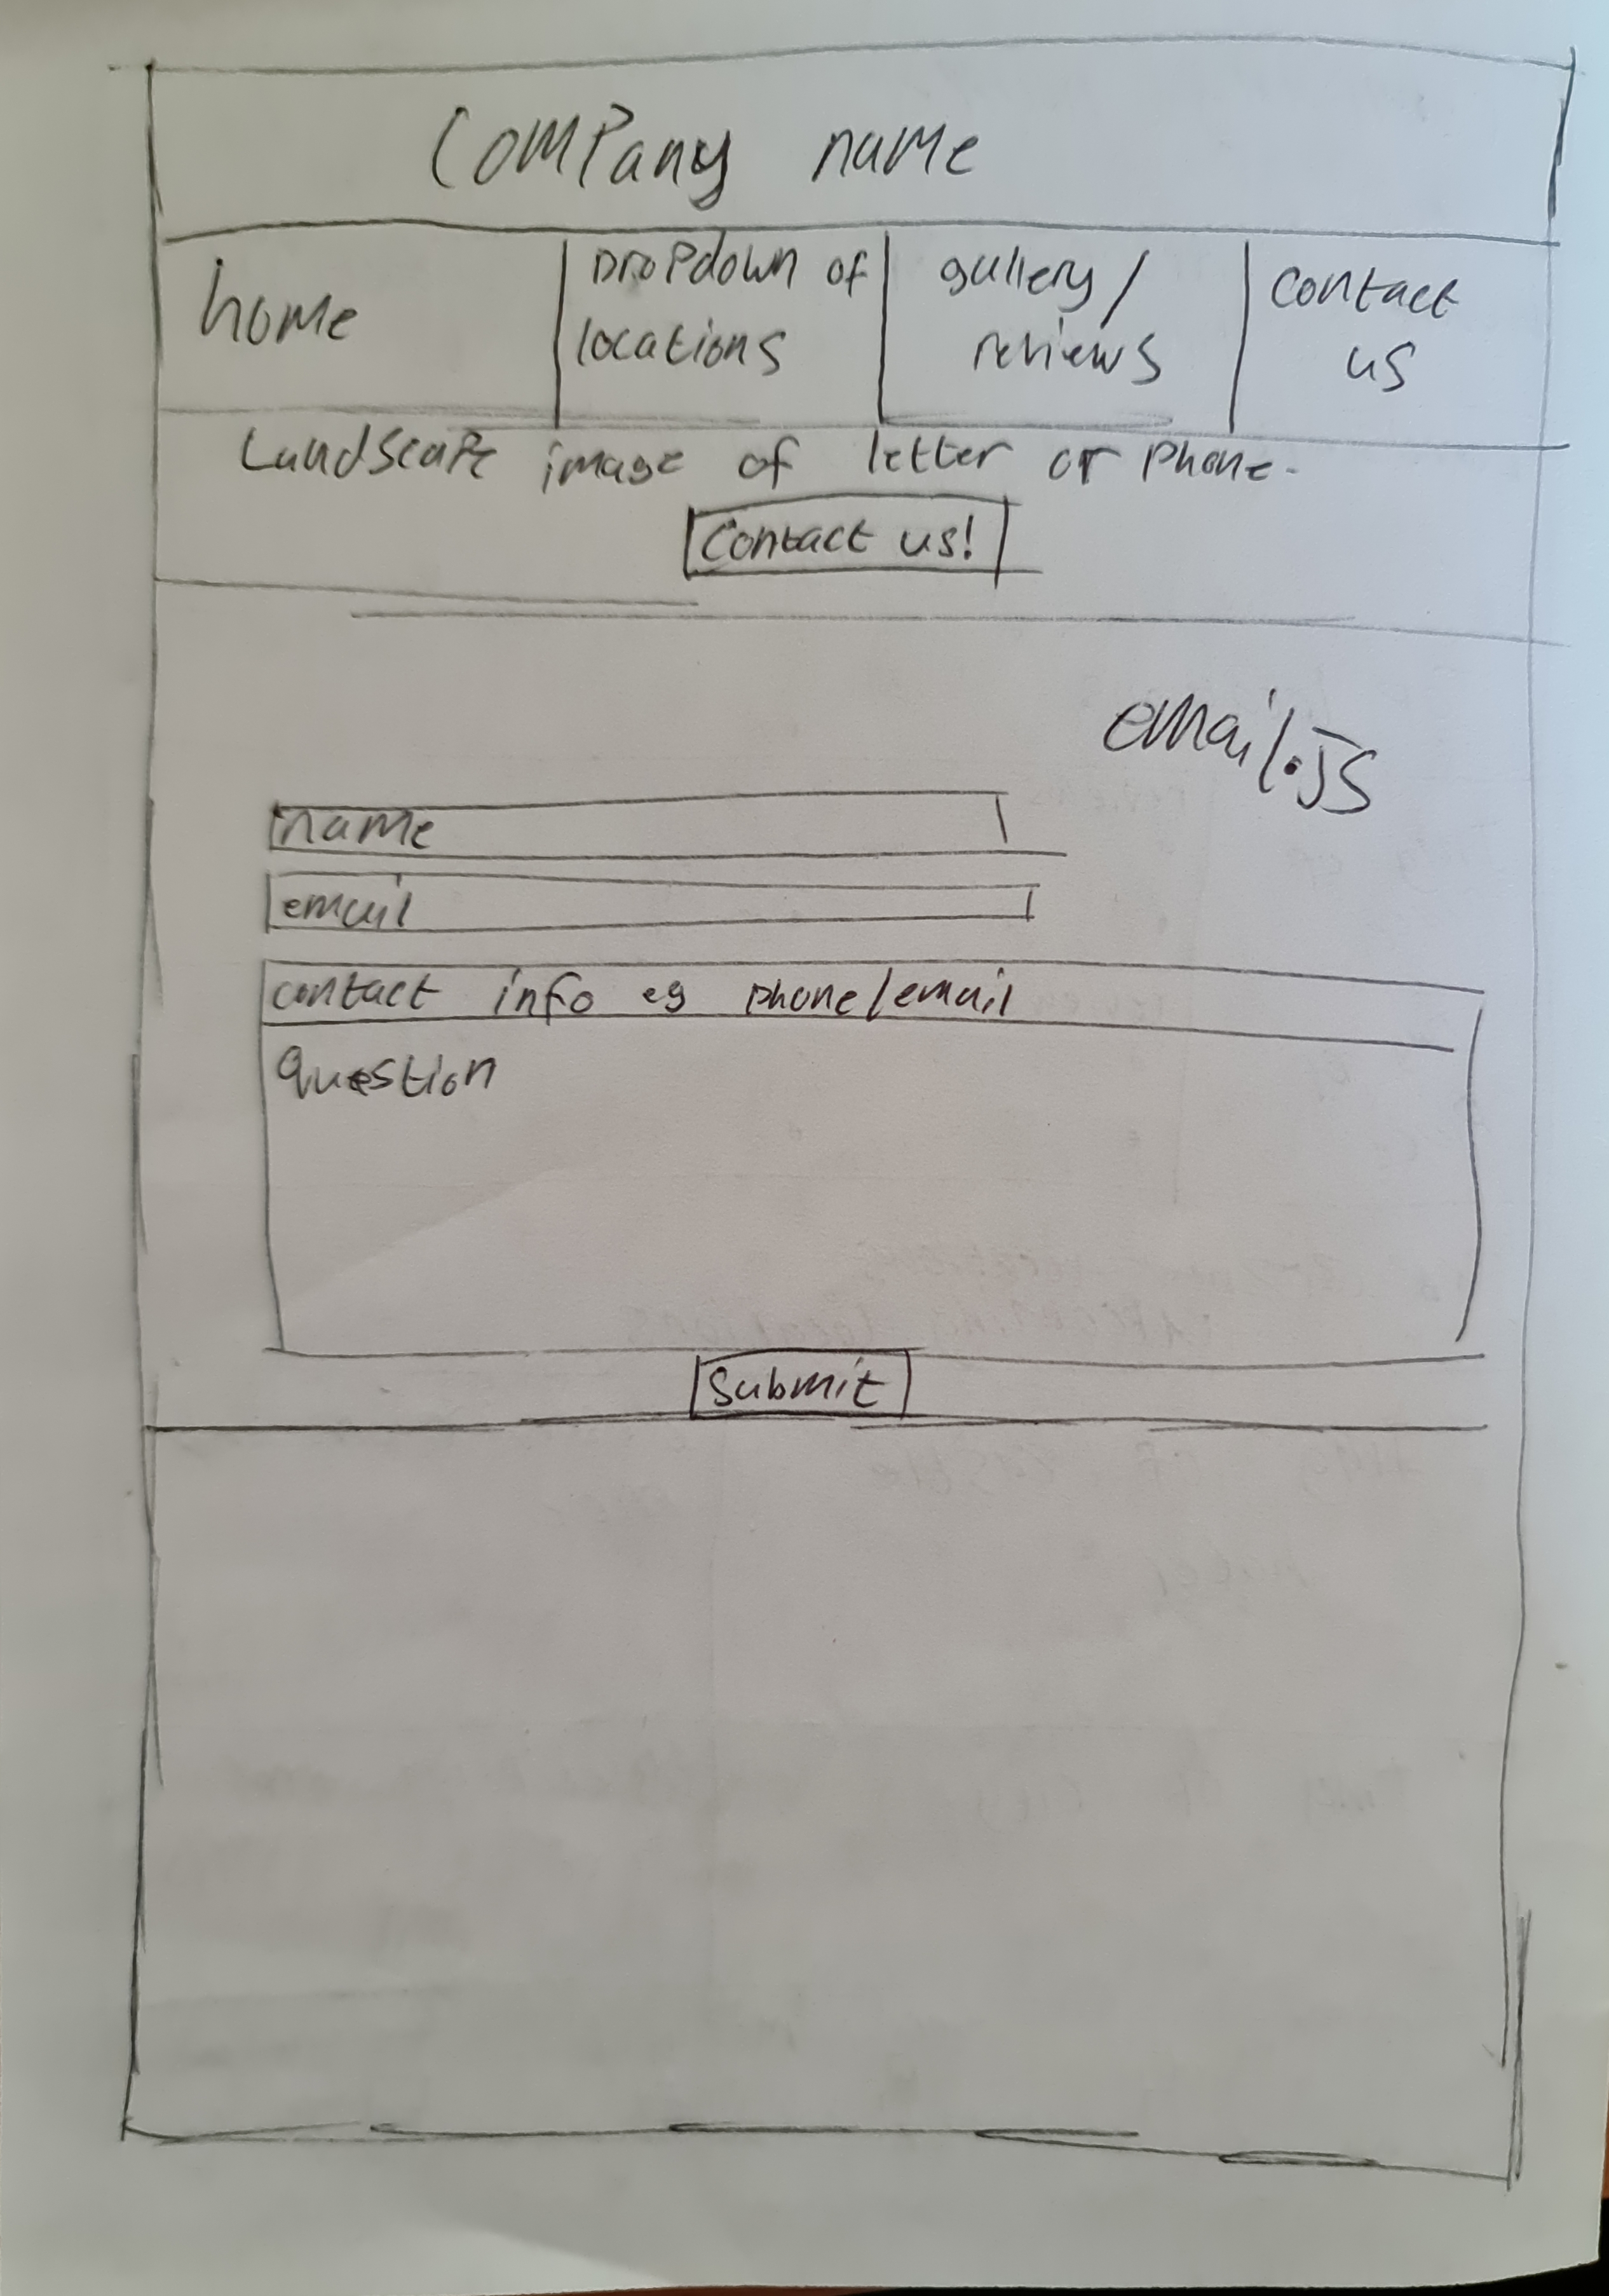 Company name
home
Dropdown of
locations
gallery/
reviews
contact
us
Landscape image of letter or phone.
Contact us!
email.js
name
email
contact info eg phone/email
Question
Submit